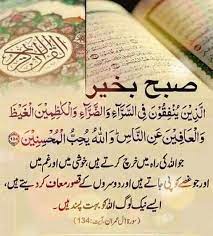 صبح بخیر
الَّذِيْنَ يُنْفِقُوْنَ فِى السَّرَّآءِ وَالضَّرَّآءِ وَالْكٰظِمِيْنَ الْغَيْظَ
وَالْعَافِيْنَ عَنِ النَّاسِ وَاللّٰهُ يُحِبُّ الْمُحْسِنِيْنَ
جو اللہ کی راہ میں خرچ کرتے ہیں خوشی میں اور غم میں
اور جو غصے کو پی جاتے ہیں اور دوسروں کے قصور معاف کر دیتے ہیں،
ایسے نیک لوگ اللہ کو بہت پسند ہیں۔
(سورۃ آل عمران، آیت: 134)